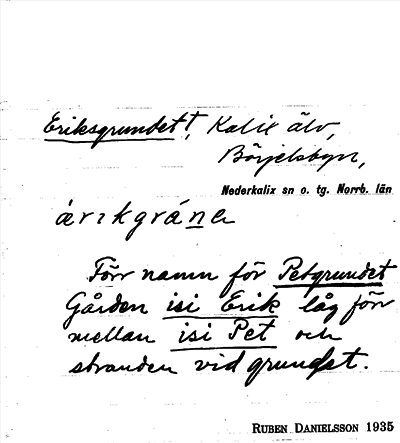 Eriksgrundet†, Kalix älv,
Börjelsbyn,
Nederkalix sn o. tg. Norrb. län
ærıkgrána
Förr namn för Petgrundet
Gården isi Erik låg förr
mellan isi Pet och
stranden vid grundet.
RUBEN DANIELSSON 1935